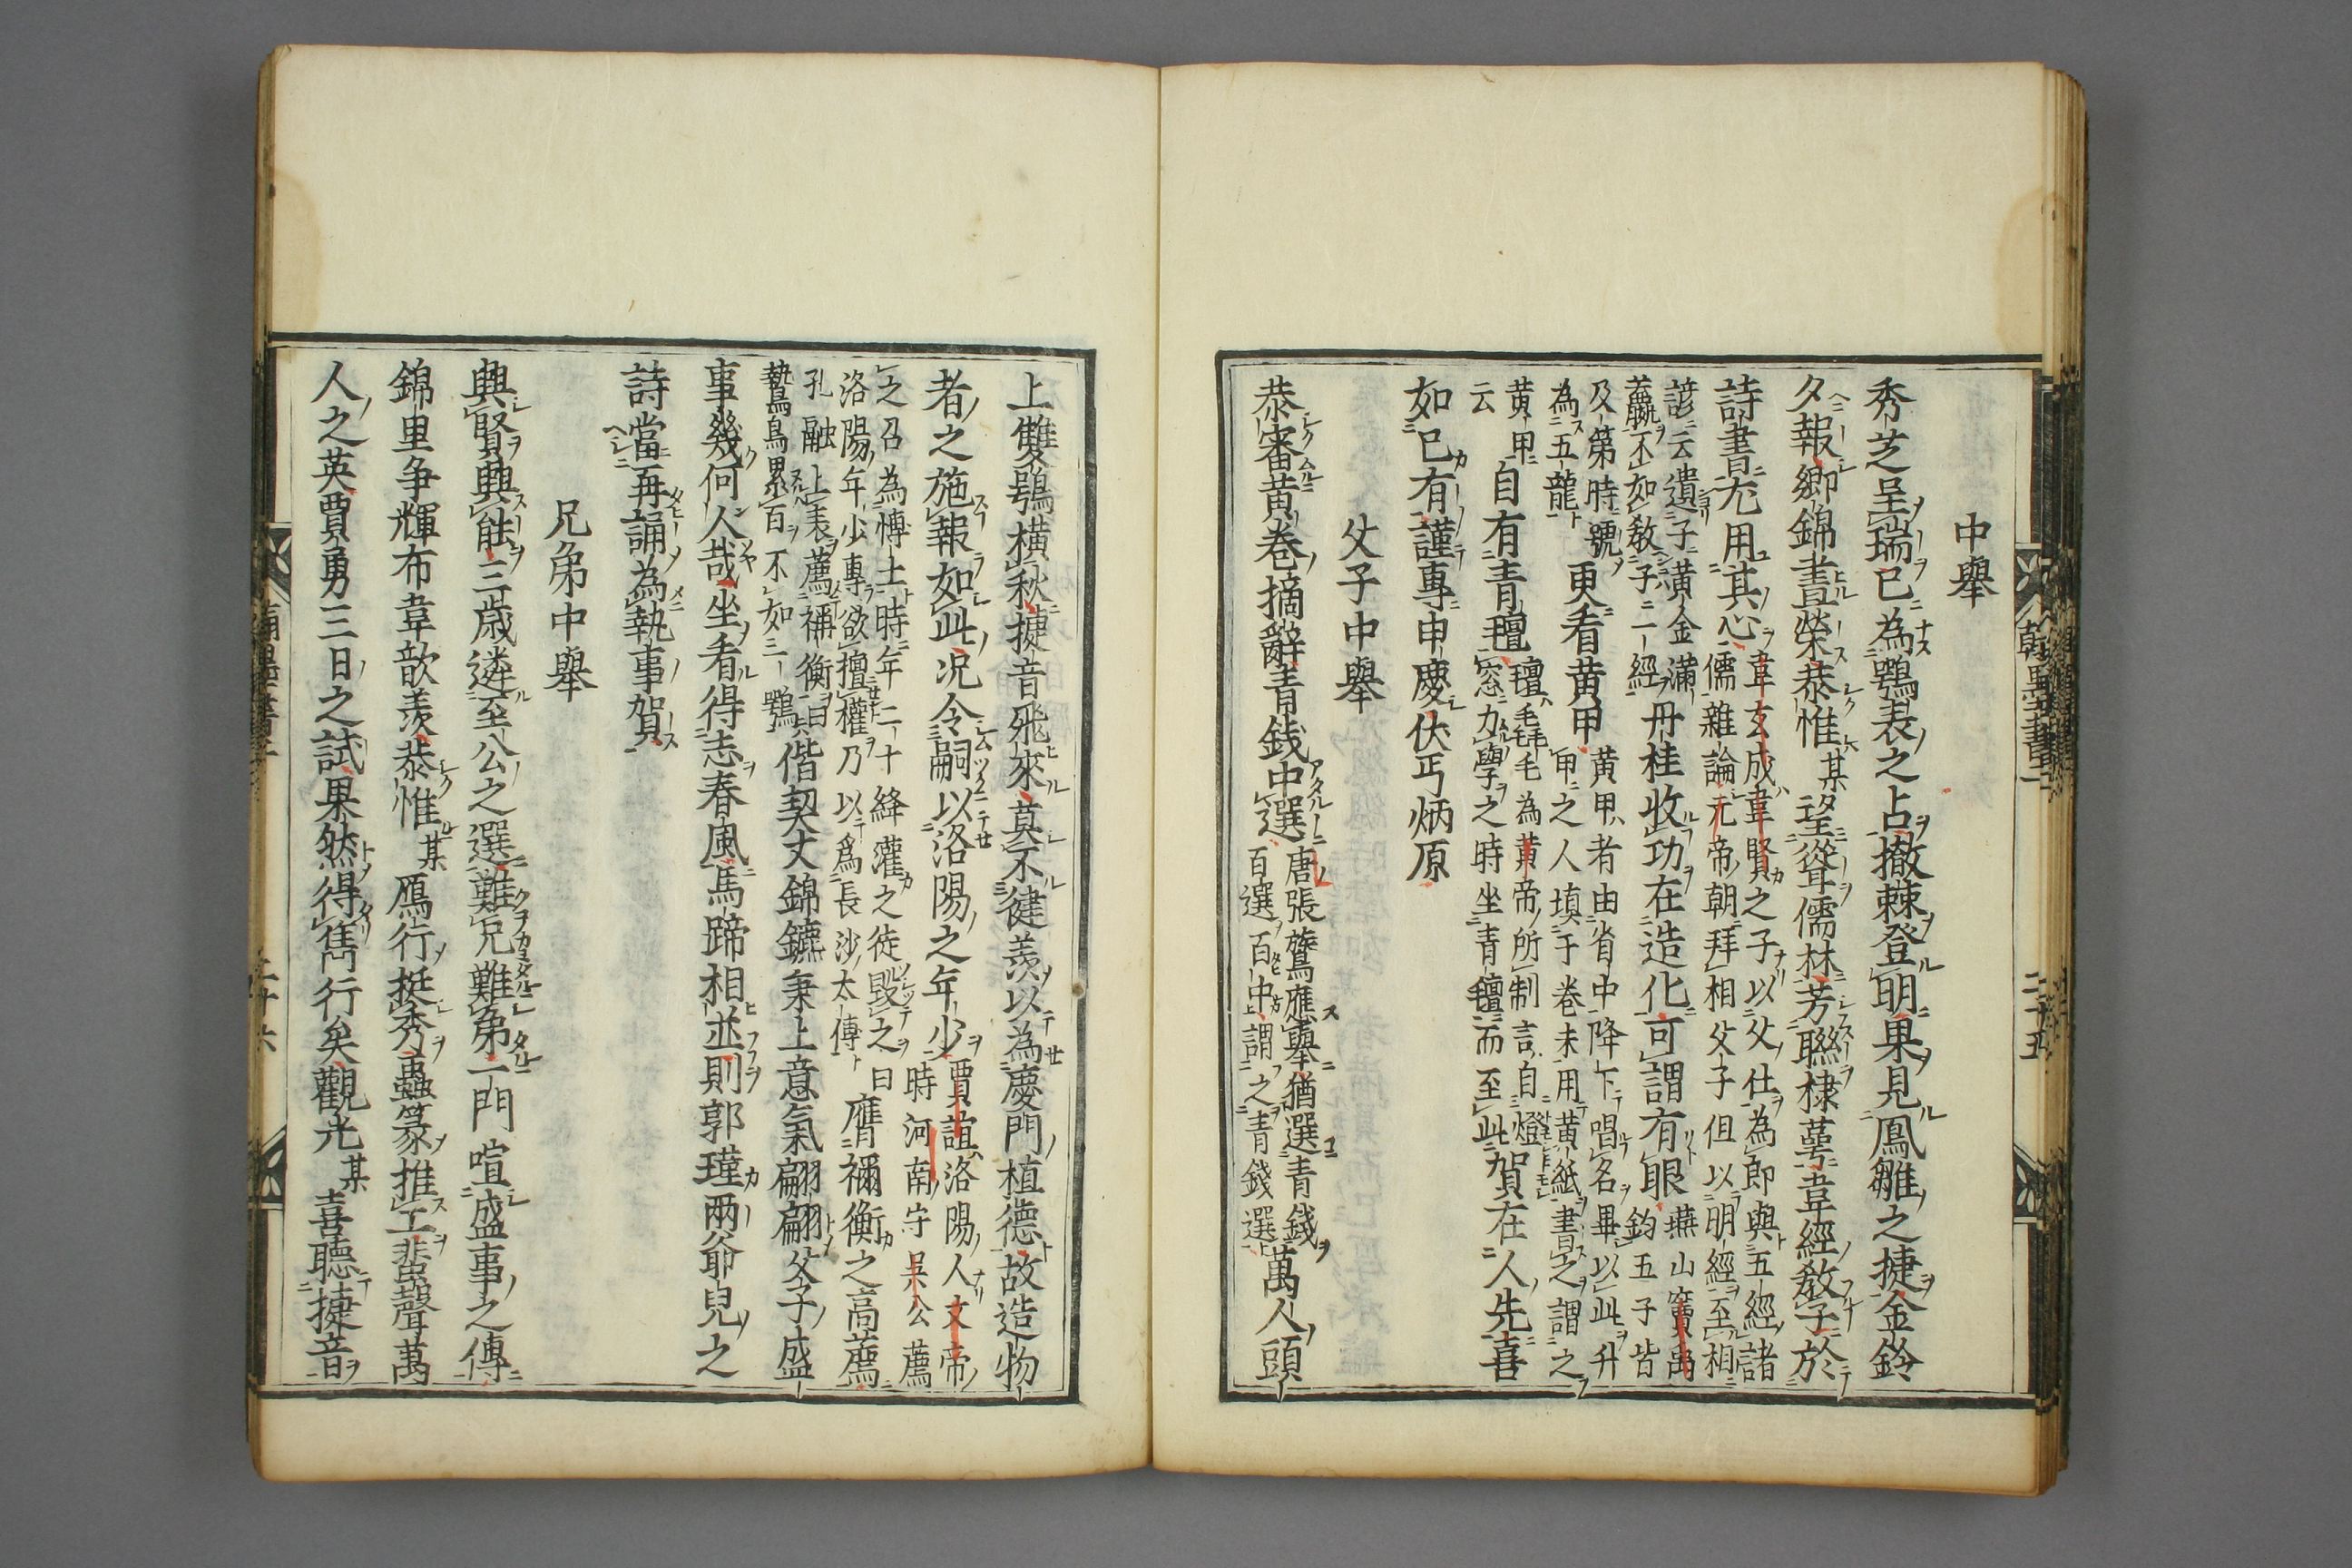 中舉
秀芝呈瑞已為鶚表之占撤棘登明果見鳳雛之捷金鈴
夕報鄉錦晝榮恭惟某望聳儒林芳聯棣萼韋經教子於
詩書尤用其心韋玄成韋賢之子以父仕為郎與五經諸儒雜論元帝朝拜相父子但以明經至相
諺云遺子黃金滿籯不如教子一經丹桂收功在造化可謂有眼燕山竇禹鈞五子皆
及第時號為五龍更看黃甲黃甲者由省中降下唱名畢以此升甲之人填于卷末用黃紙書之謂之
黃甲云自有青氊氊毛毳毛為黃帝所制言自燈窓力學之時坐青氊而至此賀在人先喜
如已有謹專申慶伏丐炳原
父子中舉
恭審黃卷摘辭青錢中選唐張鷟應舉猶選青錢百選百中謂之青錢選萬人頭
二十五
上雙鶚橫秋捷音飛來莫不健羨以為慶門植德故造物
者之施報如此况令嗣以洛陽之年少賈誼洛陽人文帝時河南守吳公薦
之召為博士時年二十絳灌之徒毀之曰洛陽年少專欲擅權乃以爲長沙太傅膺禰衡之高薦
孔融上表薦禰衡曰鷙鳥累百不如一鶚偕契丈錦鑣秉上意氣翩翩父子盛
事幾何人哉坐看得志春風馬蹄相並則郭瑾兩爺兒之
詩當再誦為執事賀
兄弟中舉
興賢興能三歲遴至公之選難兄難弟一門喧盛事之傳
錦里争輝布韋歆羨恭惟某鴈行挺秀蟲篆推工蜚聲萬
人之英賈勇三日之試果然得雋行矣觀光某喜聽捷音